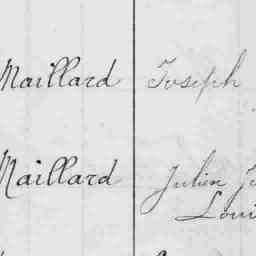 Maillard Joseph
Maillard Julien